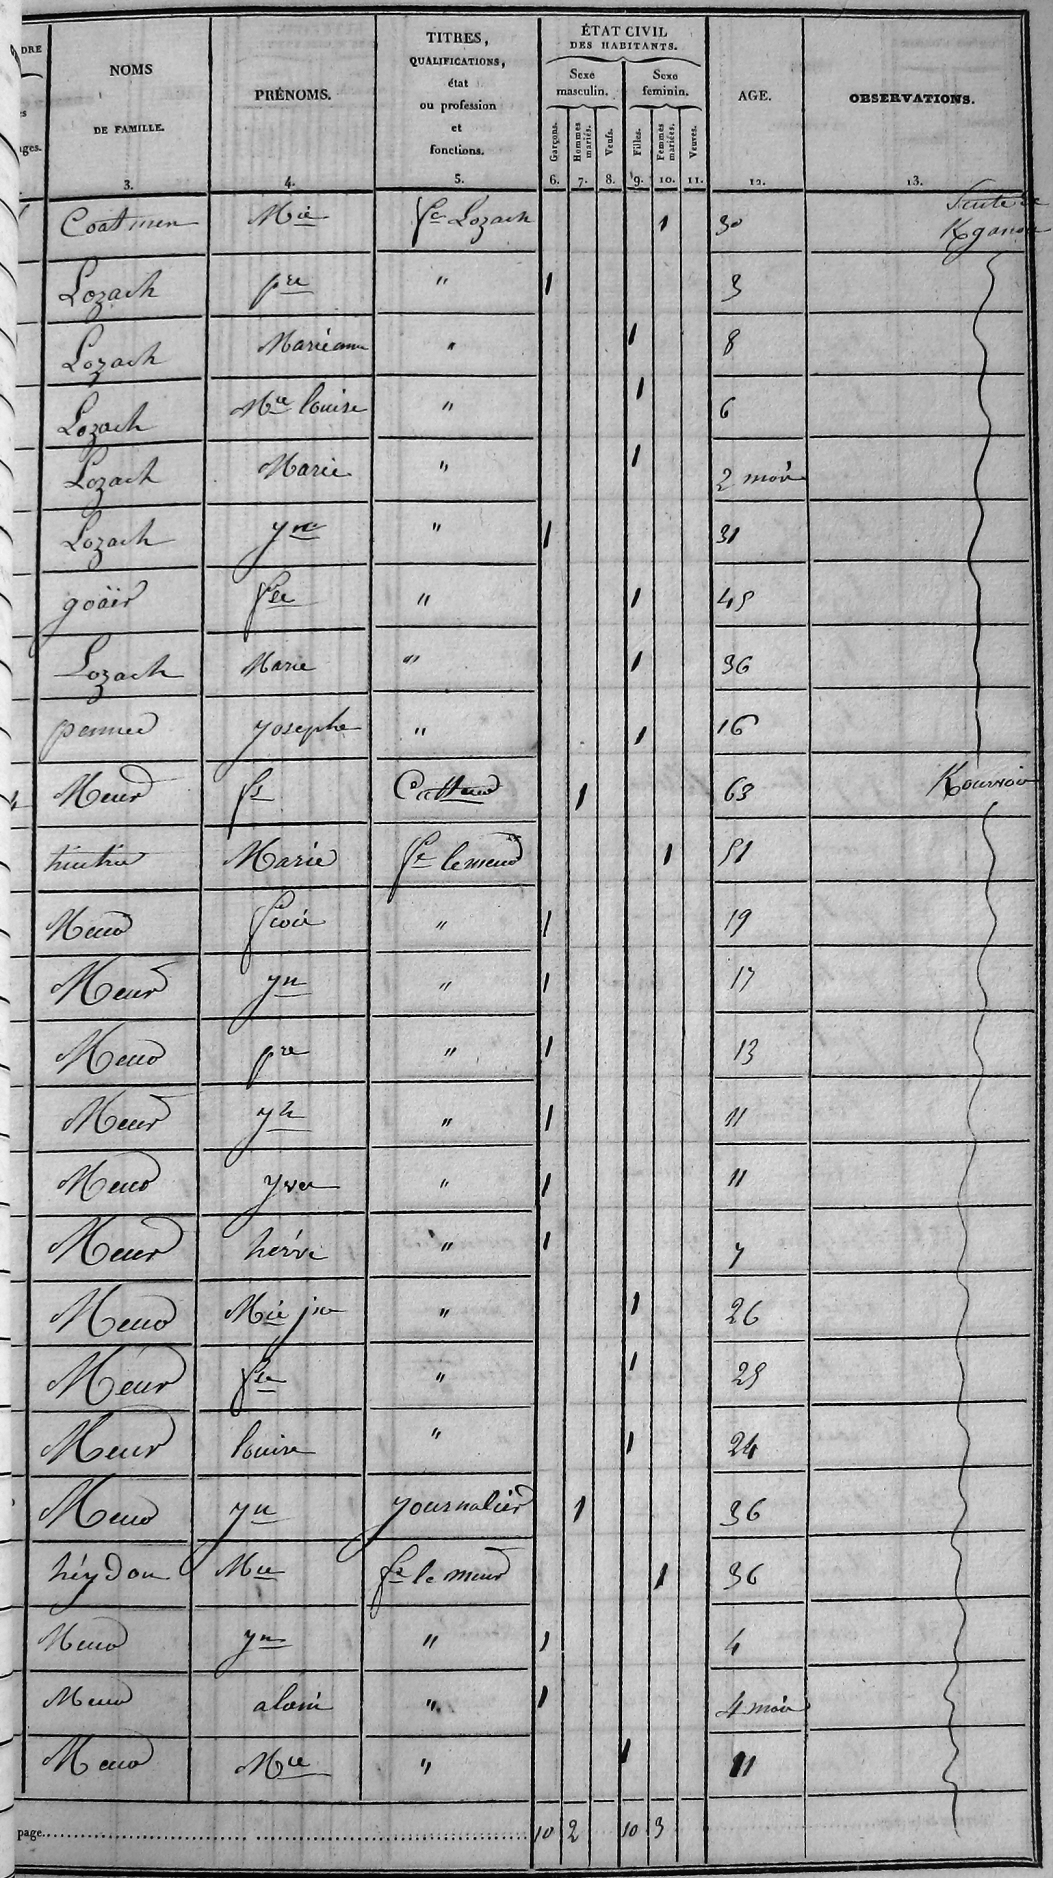 DRE
ges.
NOMS
DE FAMILLE.
3.
PRÉNOMS.
4.
TITRES,
QUALIFICATIONS,
état
ou profession
et
fonctions.
5.
ÉTAT CIVIL
DES HABITANTS.
Sexe masculin.
Sexe feminin.
Garçons. 6.
Hommes mariés. 7.
Veufs. 8.
Filles. 9.
Femmes mariées. 10.
Veuves. 11.
AGE.
12.
OBSERVATIONS.
13.
Suite de
Coatmen Mie fe Lozach 1 30 Kganou
Lozach pre " 1 3
Lozach Marieanne " 1 8
Lozach Mie louise " 1 6
Lozach Marie " 1 2 mois
Lozach yve " 1 31
goäër fse " 1 45
Lozach Marie " 1 36
pennec yosephe " 1 16
Meur fs 1 63 Kourvoir
Marie fe lemeur 1 51
Meur " 1 19
Meur yn " 1 17
Meur pre " 1 13
Meur yh " 1 11
Meur yves " 1 11
Meur hérve " 1 7
Meur Mie jne " 1 26
Meur fse " 1 25
Meur louise " 1 24
Meur yn yournalier 1 36
héydou Mie fe le meur 1 36
Meur yn " 1 4
Meur alain " 1 4 mois
Meur Mie " 1 11
page 10 2 10 3